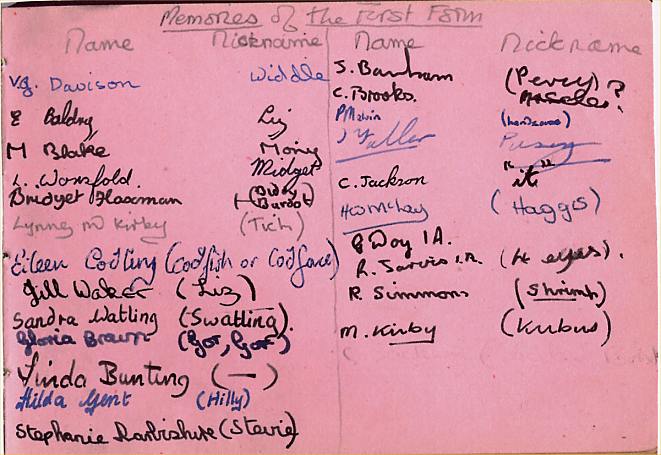 Memories of the First Form
Name Nickname
V.J. Davison Widdle
E Baldry Liz
M Blake Money
L. Worsfold. Midget
Bridget Flaxman
Lynney M Kirby (Tich)
Eileen Codling (Codfish or Codface)
Jill Waker (Liz)
Sandra Watling (Swatling).
Gloria Brown (Gor, Gor)
Linda Bunting (—)
Hilda Gent (Hilly)
Stephanie Darbishire (Stevie)
Name Nickname
S. Bantram (Percy)
C. Brooks. ?
P Melvin (handsome)
J Fuller Pussy
C. Jackson "it"
(Haggis)
G Day 1A.
R. Jarvis I.A. (4 eyes).
R. Simmons (Shrimp)
M. Kirby (Kubus)